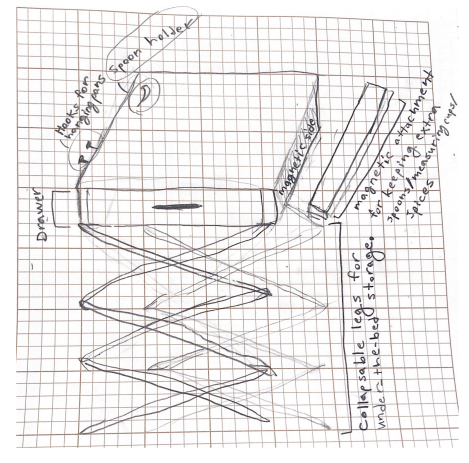 Spoon holder
Hooks for
hanging pans
magnetic side
magnetic attachment
for keeping extra
spoons/measuring cups/
spices
Drawer
Collapsable legs for
under-the-bed storage.